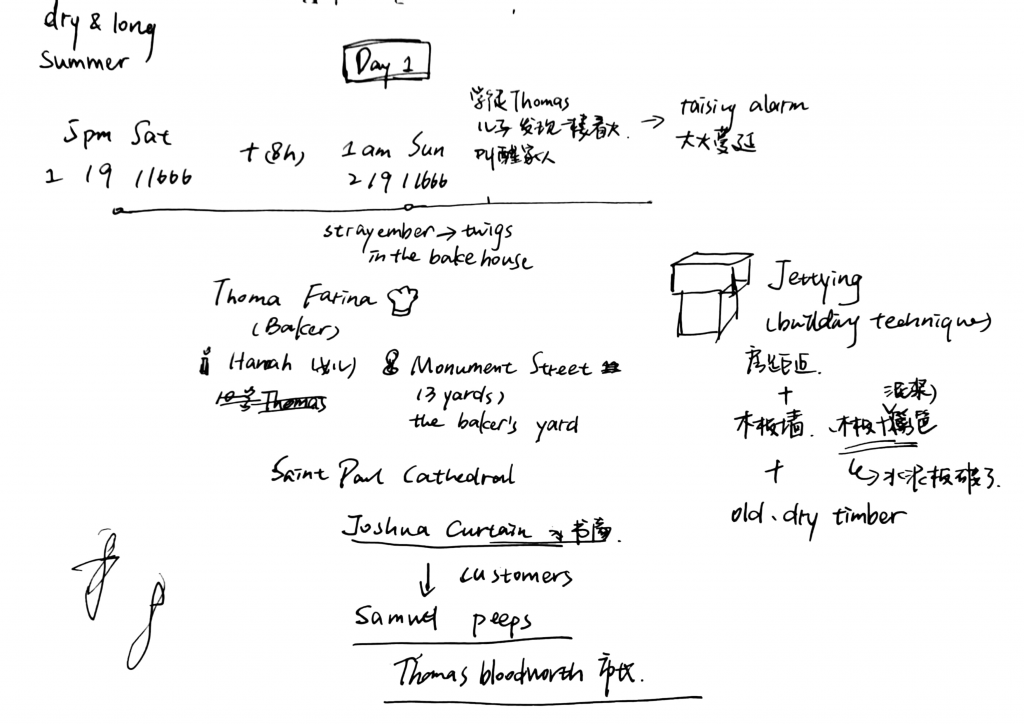 dry & long
summer
Day 1
5pm Sat
1 19 11666
+(8h)
1am Sun
2 19 11666
学徒Thomas
儿子发现一楼着火
叫醒家人
→ raising alarm
大火蔓延
stray ember → twigs
in the bakehouse
Thoma Farina
(Baker)
Hannah (女儿)
Monument Street
(3 yards)
the baker's yard
Saint Paul Cathedral
Joshua Curtain → 书商.
↓ customers
Samuel peeps
Thomas bloodworth 市长.
Jettying
(building techniques)
房距近.
+
木板墙.
+
水泥板破了.
old、dry timber